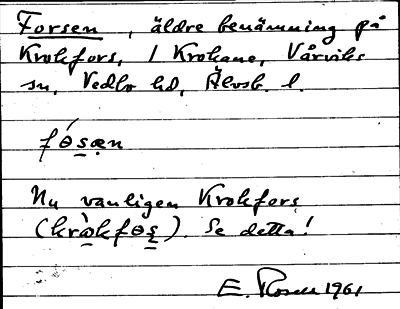 Forsen, äldre benämning på
Krokfors, i Krokane, Vårviks
sn, Vedbo hd, Älvsb. l.
fósæn
Nu vanligen Krokfors
(kròkfɵs). Se detta!
E. Rosell 1961